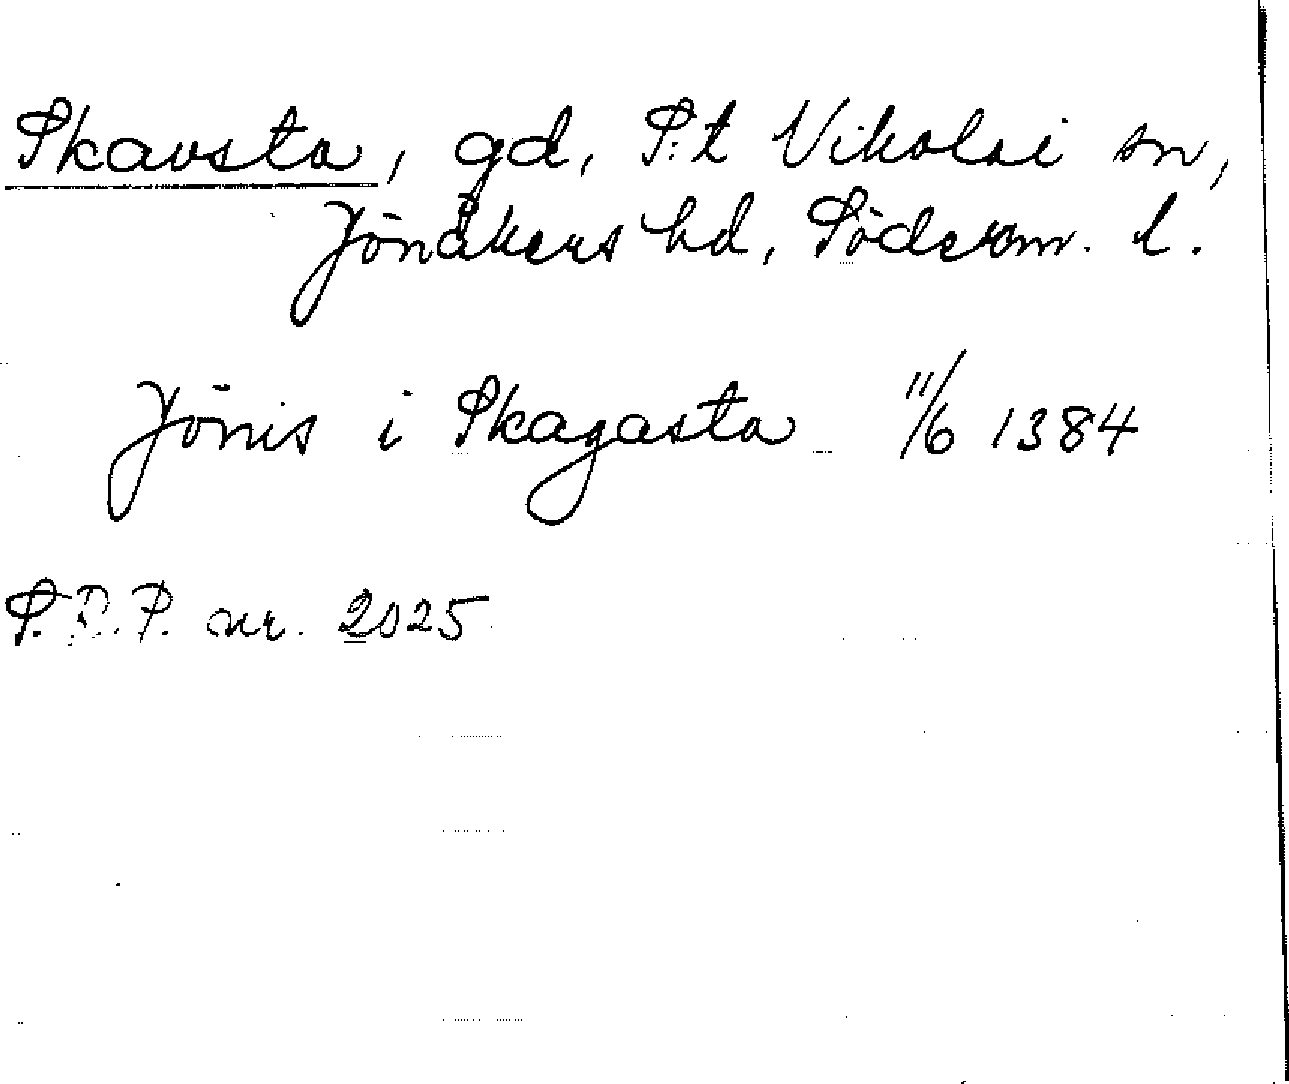 Skavsta, gd, S:t Nikolai sn,
Jönåkers hd, Söderm. l.
Jönis i Skagasta 11/6 1384
S.R.P. nr. 2025